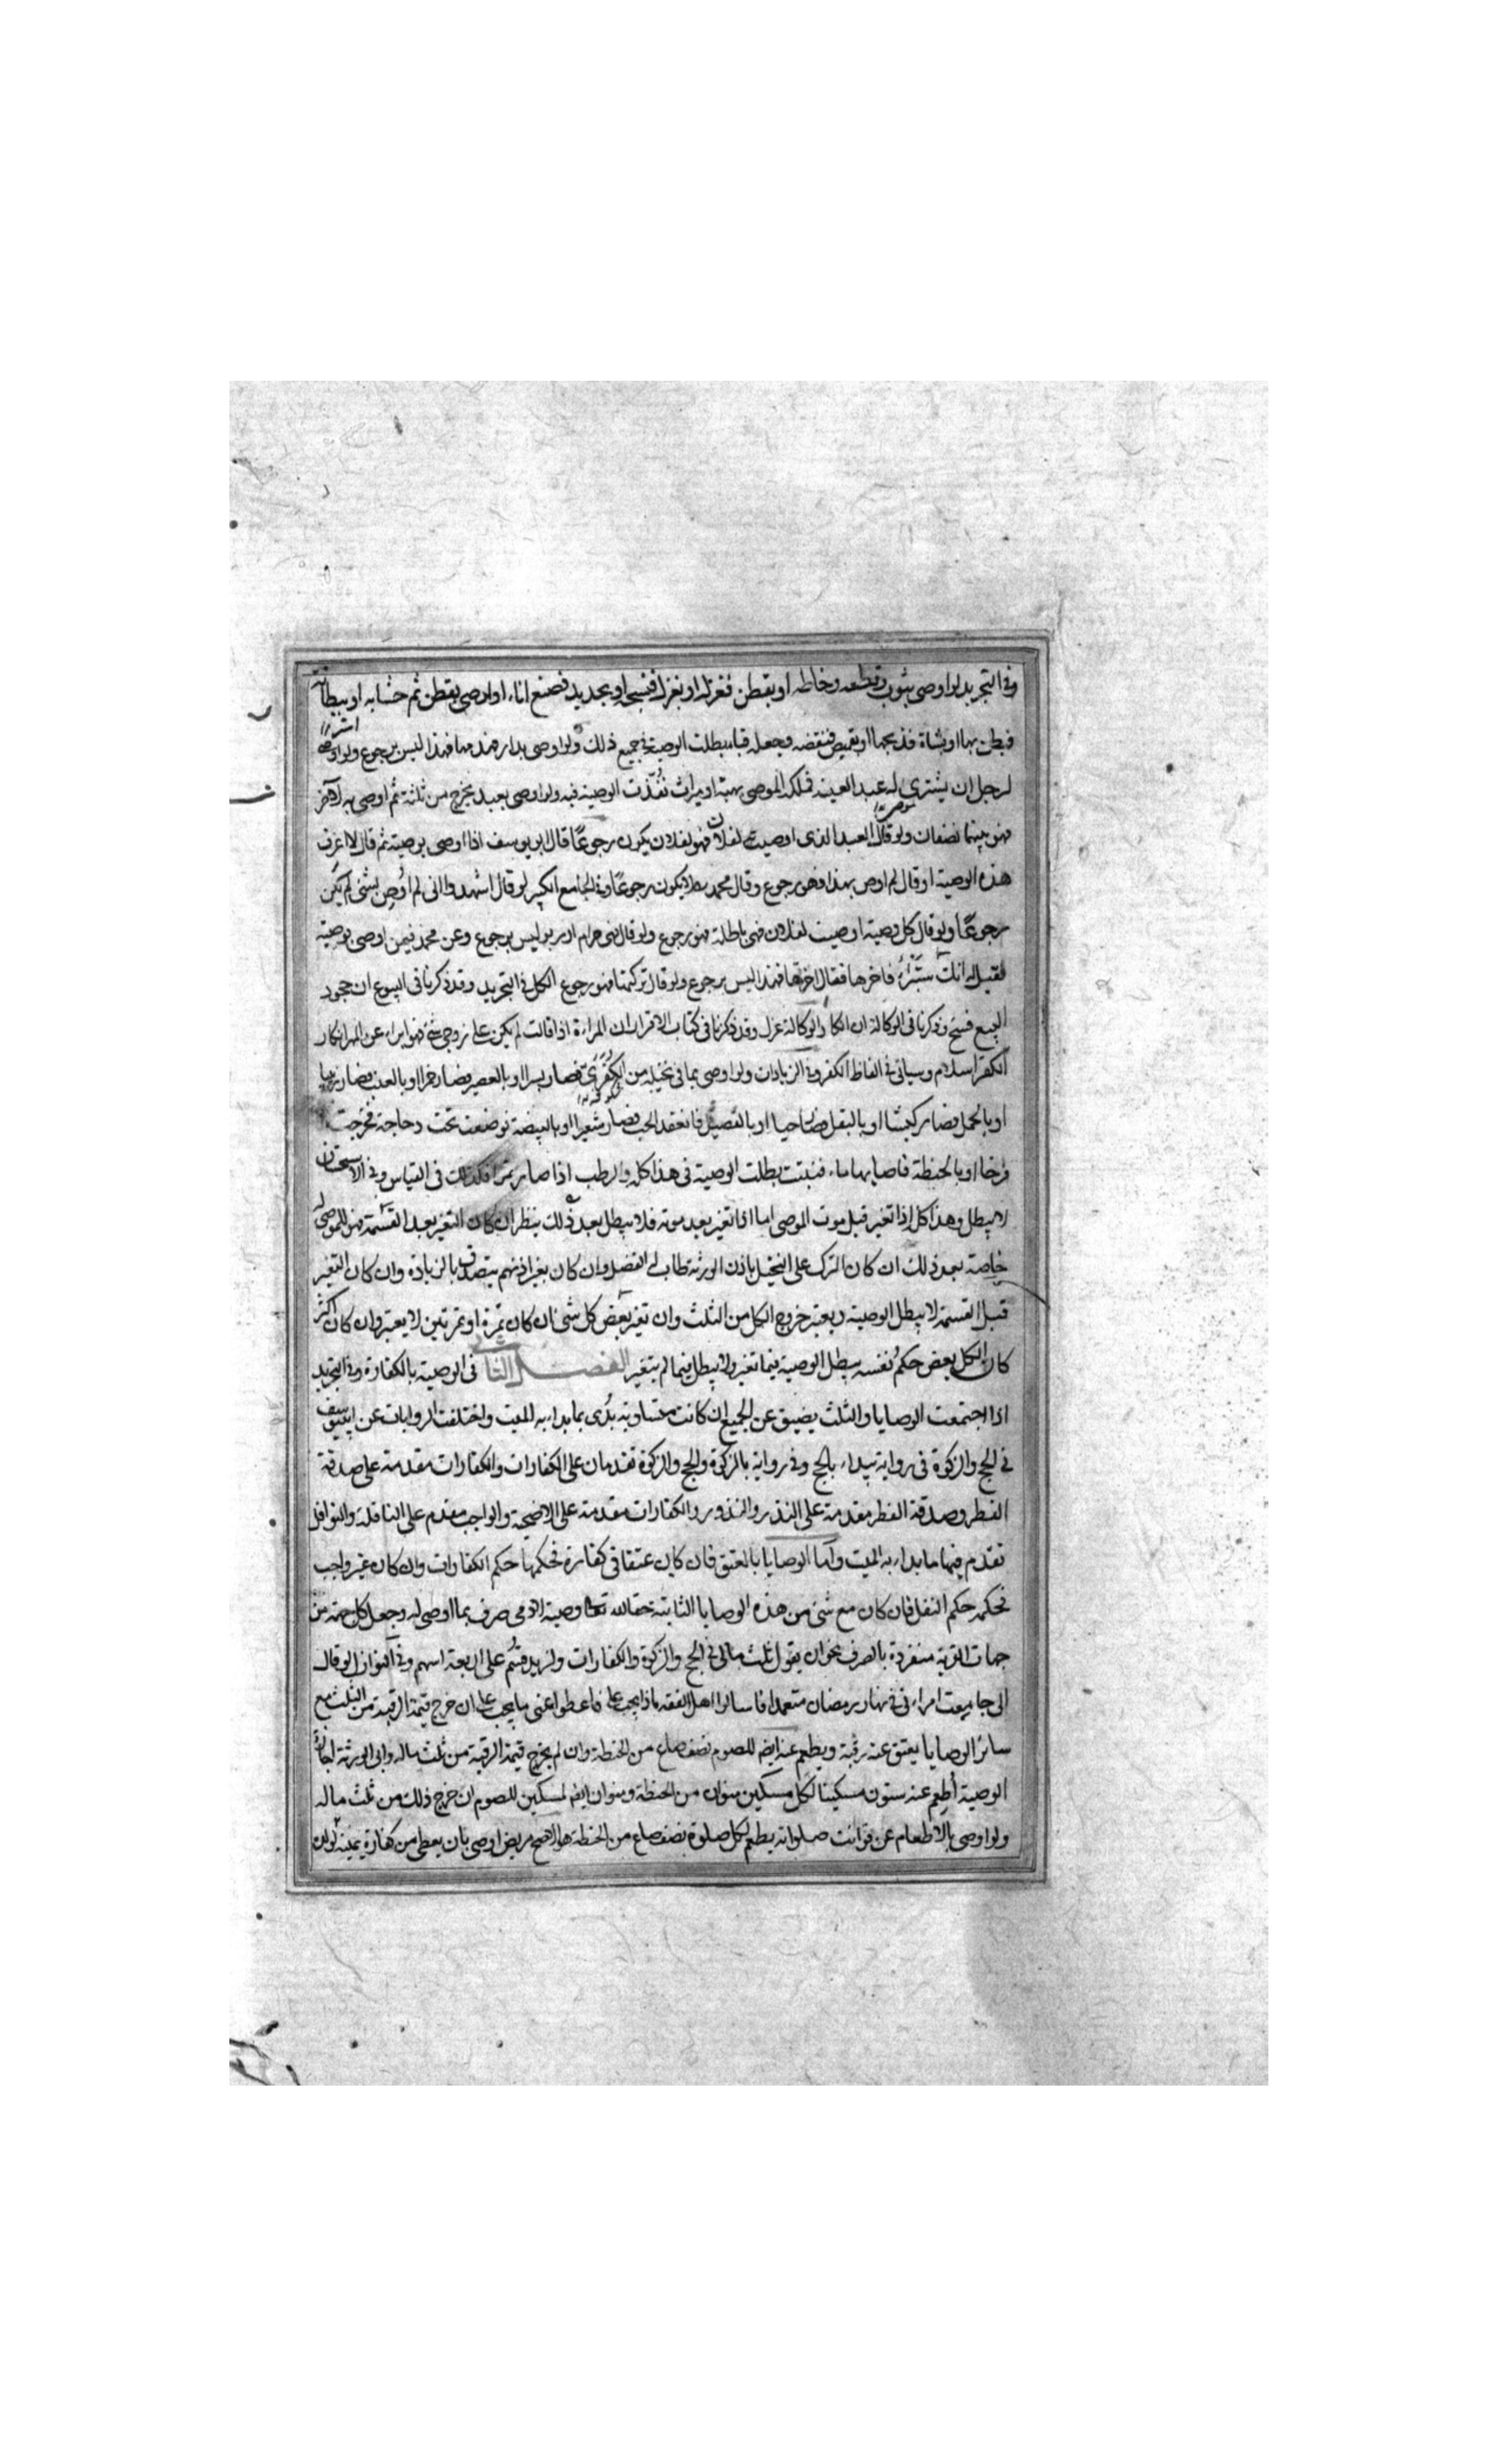 وفي التجريد لو اوصى بثوب وقطعه وخاطه او بقطن فغزله او بغزل فنسجه او بحديد فصنع اناء او اوصى بقطن ثم حشا به او ببطانة
فبطن بها او بشاة فذبحها او بقميص فنقضه وجعله قباء بطلت الوصية في جميع ذلك ولو اوصى بدار فهدمها فهذا ليس برجوع ولو اوصى
لرجل ان يشترى له عبدا لعينه فملكه الموصى بهبة او ميراث نُفّذت الوصية فيه ولو اوصى بعبد يخرج من ثلثه ثم اوصى به لآخر
فهو بينهما نصفان ولو قال العبد الذى اوصيت لفلان فهو لفلان يكون رجوعًا قال ابو يوسف اذا اوصى بوصية ثم قال لا اعرف
هذه الوصية او قال لم اوص بهذا فهى رجوع وقال محمد لا يكون رجوعًا وفى الجامع الكبير لو قال اشهدوا انى لم اُوصِ بشئ لم يكن
رجوعًا ولو قال كل وصية اوصيت لفلان فهى باطلة فهو رجوع ولو قال فهى حرام او ربو ليس برجوع وعن محمد فيمن اوصى بوصية
فقيل له انك ستبرأ فاخرها فقال اخرتها فهذا ليس برجوع ولو قال تركتها فهو رجوع الكل فى التجريد وقد ذكرنا فى البيوع ان جحود
البيع فسخ وذكرنا فى الوكالة ان انكار الوكالة عزل وقد ذكرنا فى كتاب الاقرار ان المراءة اذا قالت لم يكن على زوجى شئ فهو ابراء عن المهر انكار
الكفر اسلام وسياتى فى الفاظ الكفر وفى الزيادات ولو اوصى بما فى نخيله من الكُفُرّى فصار بسرا او بالعصير فصار خمرا او بالعنب فصار زبيبا
او بالحمل فصار كبشا او بالبقل او بالفصيل فانعقد الحب فصار شعيرا او بالبيضة فوضعت تحت دجاجة فخرجت
فرخا او بالحنطة فاصابها ماء فنبتت بطلت الوصية فى هذا كله والرطب اذا صار تمرا فكذلك فى القياس وفى الاستحسان
لا يبطل وهذا كله اذا تغير قبل موت الموصى اما اذا تغير بعد موته فلا يبطل بعد ذلك ينظر ان كان التغير بعد القسمة فهو للموصى له
خاصة بعد ذلك ان كان الترك على النخيل باذن الورثة طاب له الفضل وان كان بغير اذنهم يتصدق بالزيادة وان كان التغير
قبل القسمة لا يبطل الوصية ويعتبر خروج الكل من الثلث وان تغير بعض كل شئ ان كان تمرة او تمرتين لا يعتبر وان كان اكثر
كان لكل بعض حكم نفسه يبطل الوصية فيما تغير ولا يبطل فيما لم يتغير الفصل الثانى فى الوصية بالكفارة وفى التجريد
اذا اجتمعت الوصايا والثلث يضيق عن الجميع ان كانت متساوية بدئ بما بداء به الميت واختلفت الروايات عن ابى يوسف
فى الحج والزكوة فى رواية يبداء بالحج وفى رواية بالزكوة والحج والزكوة تقدمان على الكفارات والكفارات مقدمة على صدقة
الفطر وصدقة الفطر مقدمة على النذر والنذور والكفارات مقدمة على الاضحية والواجب مقدم على النافلة والنوافل
تقدم فيها ما بداء به الميت واما الوصايا بالعتق فان كان عتقا فى كفارة فحكمها حكم الكفارات وان كان غير واجب
فحكمه حكم النفل فان كان مع شئ من هذه الوصايا الثابتة حقا لله تعالى وصية لادمى صرف بما اوصى له وجعل كل جهة من
جهات القربة منفردة بالصرف نحو ان يقول ثلث مالى فى الحج والزكوة والكفارات ولزيد قسم على اربعة اسهم وفى النوازل لو قال
انى جامعت امراءتى فى نهار رمضان متعمدا فاسالوا اهل الفقه ماذا يجب على فاعطوا عنى ما يجب على ان خرج قيمة الرقبة من الثلث مع
سائر الوصايا يعتق عنه رقبة ويطعم عنه ايضا للصوم نصف صاع من الحنطة وان لم يخرج قيمة الرقبة من ثلث ماله وابى الورثة اجازة
الوصية اُطعم عنه ستون مسكينا لكل مسكين منوان من الحنطة ومنوان ايضا لمسكين للصوم ان خرج ذلك من ثلث ماله
ولو اوصى بالاطعام عن فوائت صلواته يطعم لكل صلوة نصف صاع من الحنطة هو الاصح مريض اوصى بان يعطى من كفارة يمينه لولد